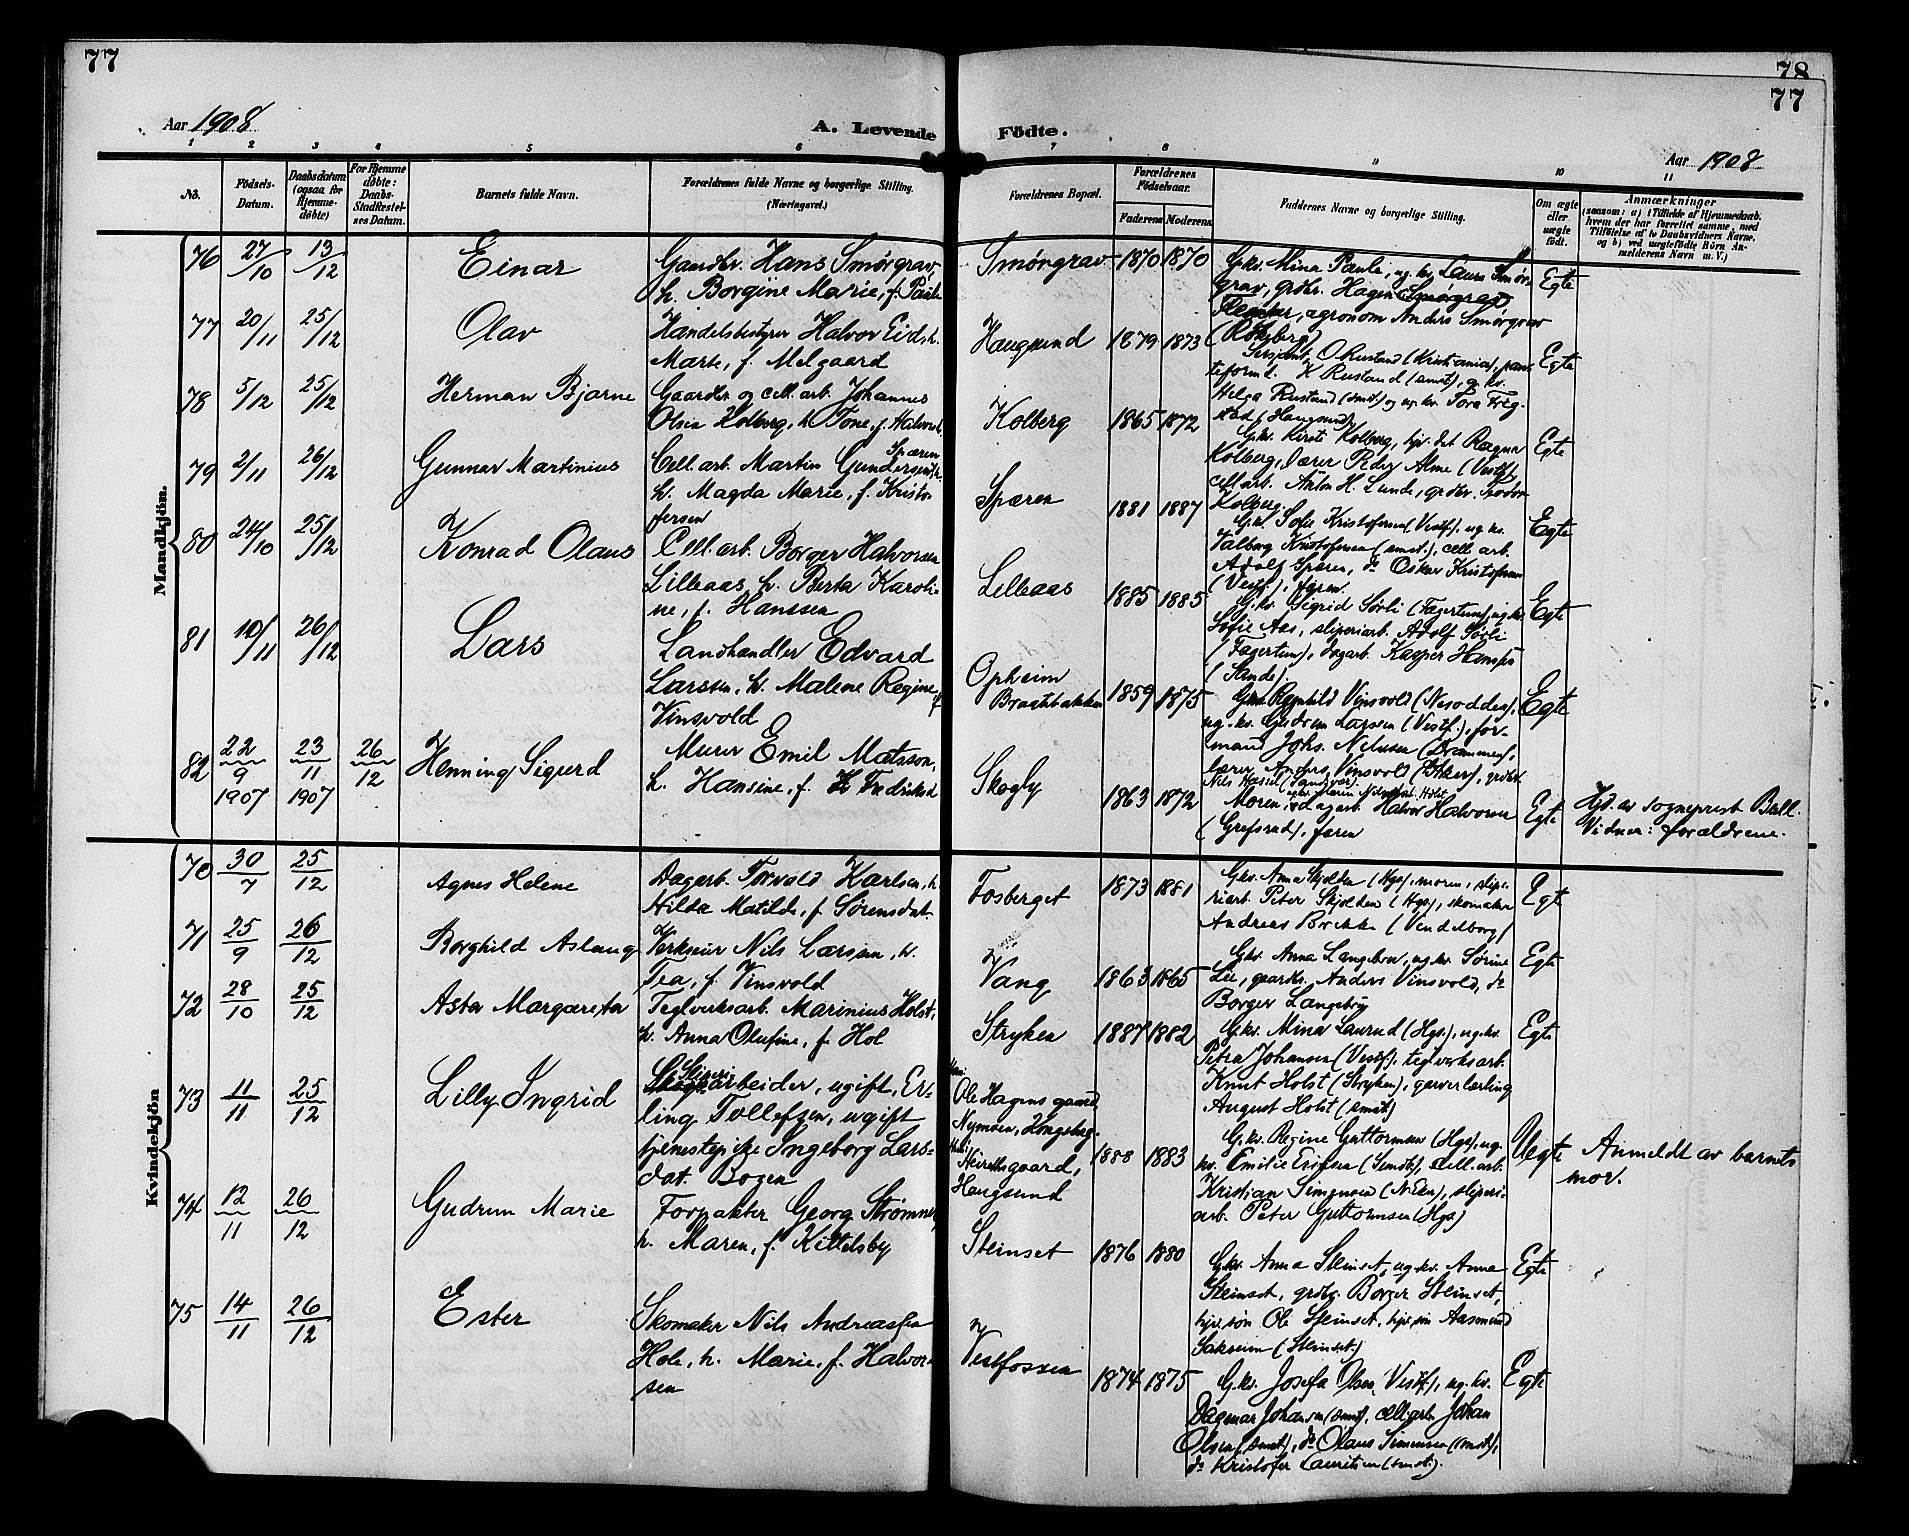 77
78
77
Aar 1908
A. Levende Födte.
Aar 1908
1 2 3 4 5 6 7 8 9 10 11
No.
Födsels-Datum.
Daabsdatum (ogsaa for Hjemme-döbte)
For Hjemme döbte: Daabs-Stadfæstelses Datum.
Barnets fulde Navn.
Forældrenes fulde Navne og borgerlige Stilling. (Næringsvei.)
Forældrenes Bopæl.
Forældrenes Födselsaar.
Faderens Moderens
Faddernes Navne og borgerlige Stilling.
Om ægte eller uægte födt.
Anmærkninger
(saasom: a) i Tilfælde af Hjemmedaab,
hvem der har forrettet samme, med
Tilföielse af to Daabsvidners Navne,
og b) ved uægtefödte Börn An-
melderens Navn m. V.)
Mandkjön.
76 27/10 13/12 Einar
Gaardbr. Hans Smørgrav,
h. Borgine Marie, f. Paule
Smørgrav 1870 1870
Gkv. Mina Paule, ug. kv. Laura Smør-
grav, grdbr. Hagen
agronom Anders Smørgrav
Egte
77 20/11 25/12 Olav
Handelsbestyrer Halvor Eid, h.
Marte, f. Melgaard
Haugsund 1879 1873
O. Rustand (Kristiania),
K. Rustand (smst),
Helga Rustand (smst) og ug. kv. Tora
(Haugsund)
Egte
78 5/12 25/12 Herman Bjarne
Gaardbr. og cell. arb. Johannes
Olsen Kolberg, h. Tone, f. Halvorsd.
Kolberg 1865 1872
Gkv. Kirsti Kolberg, hjv. dat. Ragna
Kolberg, lærer Peder Alme (Vestf),
cell arb. Anton H. Lunde, grdbr.
Kolberg.
Egte
79 2/11 26/12 Gunnar Martinius
Cell. arb. Martin Gundersen Spæren
h. Magda Marie, f. Kristo-
fersen
Spæren 1881 1887
Gkv. Sofie Kristofersen (Vestf.), ug kv.
Valborg Kristofersen (smst.), cell arb.
Adolf Spæren, do Oskar Kristofersen
(Vestf.), færen.
Egte
80 24/10 25/12 Konrad Olaus
Cell. arb. Borger Halvorsen
Lilleaas, h. Berta Karoli-
ne, f. Hanssen
Lilleaas 1885 1885
Gkv. Sigrid Sørli (Fagertun), ug kv.
Sofie Aas, sliperiarb. Adolf Sørli
(Fagertun), dagarb. Kasper
(Sande).
Egte
81 10/11 26/12 Lars
Landhandler Edvard
Larssen, h. Malene Regine, f.
Vinsvold
Opheim
Braatbakken 1859 1875
Gkv. Ragnhild Vinsvold (Nesodden),
ug. kv. Gudrun Larsen (Vestf.), for-
mand Johs. Nilssen (Drammen),
lærer Anders Vinsvold (Aker),
Egte
82 22/9 1907 23/11 1907 26/12 Henning Sigurd
Murer Emil Matsson,
h. Hansine, f. Fredriksd
Skogly 1863 1872
Moren, dagarb. Halvor Halvorsen
(Grefsrud), færen
Egte
Hjd. av sogneprest Ball.
Vidner: forældrene.
Kvindekjön
70 30/7 25/12 Agnes Helene
Dagarb. Torvald Karlsen, h.
Hilda Matilde, f. Sørensdat.
Fosberget 1873 1881
Gkv. Anna Skjelden (Hgs), moren, slipe-
riarb. Peter Skjelden (Hgs), skomaker
Andreas Brekke (Vendelborg)
Egte
71 25/9 26/12 Borghild Aslaug
Verkseier Nils Larsen, h.
Tea, f. Vinsvold
Vang 1863 1865
Gkv. Anna Langebru, ug. kv. Sørine
Lie, gaardbr. Anders Vinsvold, do
Borger Langebru
Egte
72 28/10 25/12 Asta Margareta
Teglverksarb. Marinius Holst,
h. Anna Olufine, f. Hol
Stryken 1887 1882
Gkv. Mina Laurud (Hgs.), ug. kv.
Petra Johansen (Vestf), teglverksarb.
Knut Holst (Stryken), garverlærling
August Holst (smst)
Egte
73 11/11 25/12 Lilly Ingrid
Sliperi
arbeider, ugift, Er-
ling Tollefsen, ugift
tjenestepike Ingeborg Lars-
dat. Bogen
Ole Hagens gaard,
Nymoen, Kongsberg.
gaard,
Haugsund
1888 1883
Gkv. Regine Guttormsen (Hgs), ug.
kv. Emilie Eriksen (Smst), cell. arb.
Kristian Simensen (N. Eker), sliperi-
arb. Peter Guttormsen (Hgs)
Uegte
Anmeldt av barnets
mor.
74 12/11 26/12 Gudrun Marie
Forpakter Georg Strømnes,
h. Maren, f. Kittelsby
Steinset 1876 1880
Gkv. Anna Steinset, ug. kv. Anna
Steinset, grdbr. Borger Steinset,
hjv. søn Ole Steinset, hjv. søn Aasmund
Sakseim (Steinset)
Egte
75 14/11 26/12 Ester
Skomaker Nils Andreassen
Hole, h. Marie, f. Halvor-
sen
Vestfossen
1874 1875
Gkv. Josefa Olsen, Vestf), ug. kv.
Dagmar Johansen (smst), celliarb. Johan
Olsen (smst), do Olaus Simensen (smst),
do Kristofer Lauritsen (smst).
Egte